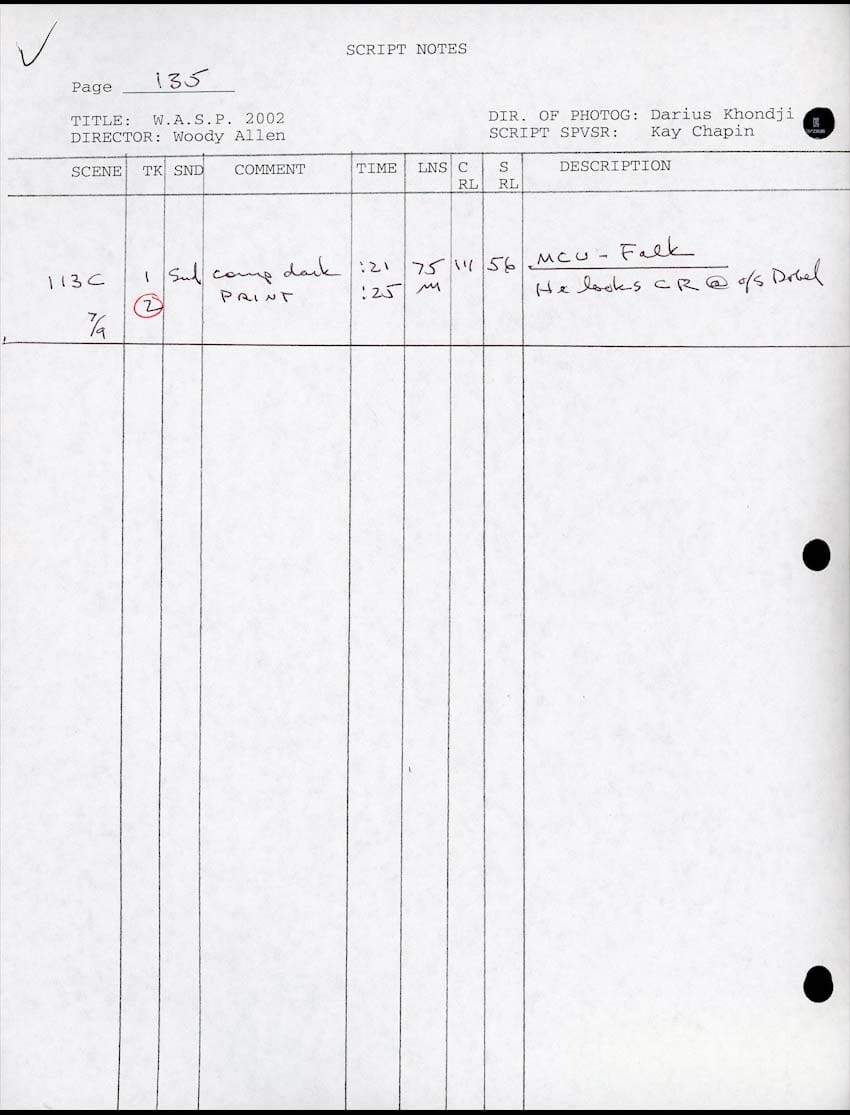 SCRIPT NOTES
Page 135
TITLE: W.A.S.P. 2002
DIR. OF PHOTOG: Darius Khondji
DIRECTOR: Woody Allen
SCRIPT SPVSR: Kay Chapin
SCENE TK SND COMMENT TIME LNS C RL S RL DESCRIPTION
113C 1 Snd comp dark :21 75 111 56 MCU - Falk
2 PRINT :25 He looks CR @ o/s Dobel
7/9